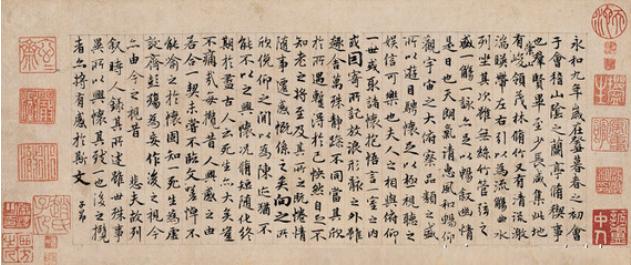 永和九年歲在癸丑暮春之初會
于會稽山陰之蘭亭脩稧事
也群賢畢至少長咸集此地
有崇山峻領茂林脩竹又有清流激
湍暎帶左右引以為流觴曲水
列坐其次雖無絲竹管弦之
盛一觴一詠亦足以暢敘幽情
是日也天朗氣清惠風和暢仰
觀宇宙之大俯察品類之盛
所以遊目騁懷足以極視聽之
娛信可樂也夫人之相與俯仰
一世或取諸懷抱悟言一室之內
或因寄所託放浪形骸之外雖
趣舍萬殊靜躁不同當其欣
於所遇暫得於己怏然自足不
知老之將至及其所之既惓情
隨事遷感慨係之矣向之所
欣俛仰之間以為陳迹猶不
能不以之興懷況脩短隨化終
期於盡古人云死生亦大矣豈
不痛哉每攬昔人興感之由
若合一契未嘗不臨文嗟悼不
能喻之於懷固知一死生為虛
誕齊彭殤為妄作後之視今
亦由今之視昔 悲夫故列
敘時人錄其所述雖世殊事
異所以興懷其致一也後之攬
者亦將有感於斯文 子昂